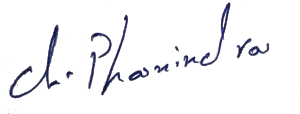 ch. Phanindra